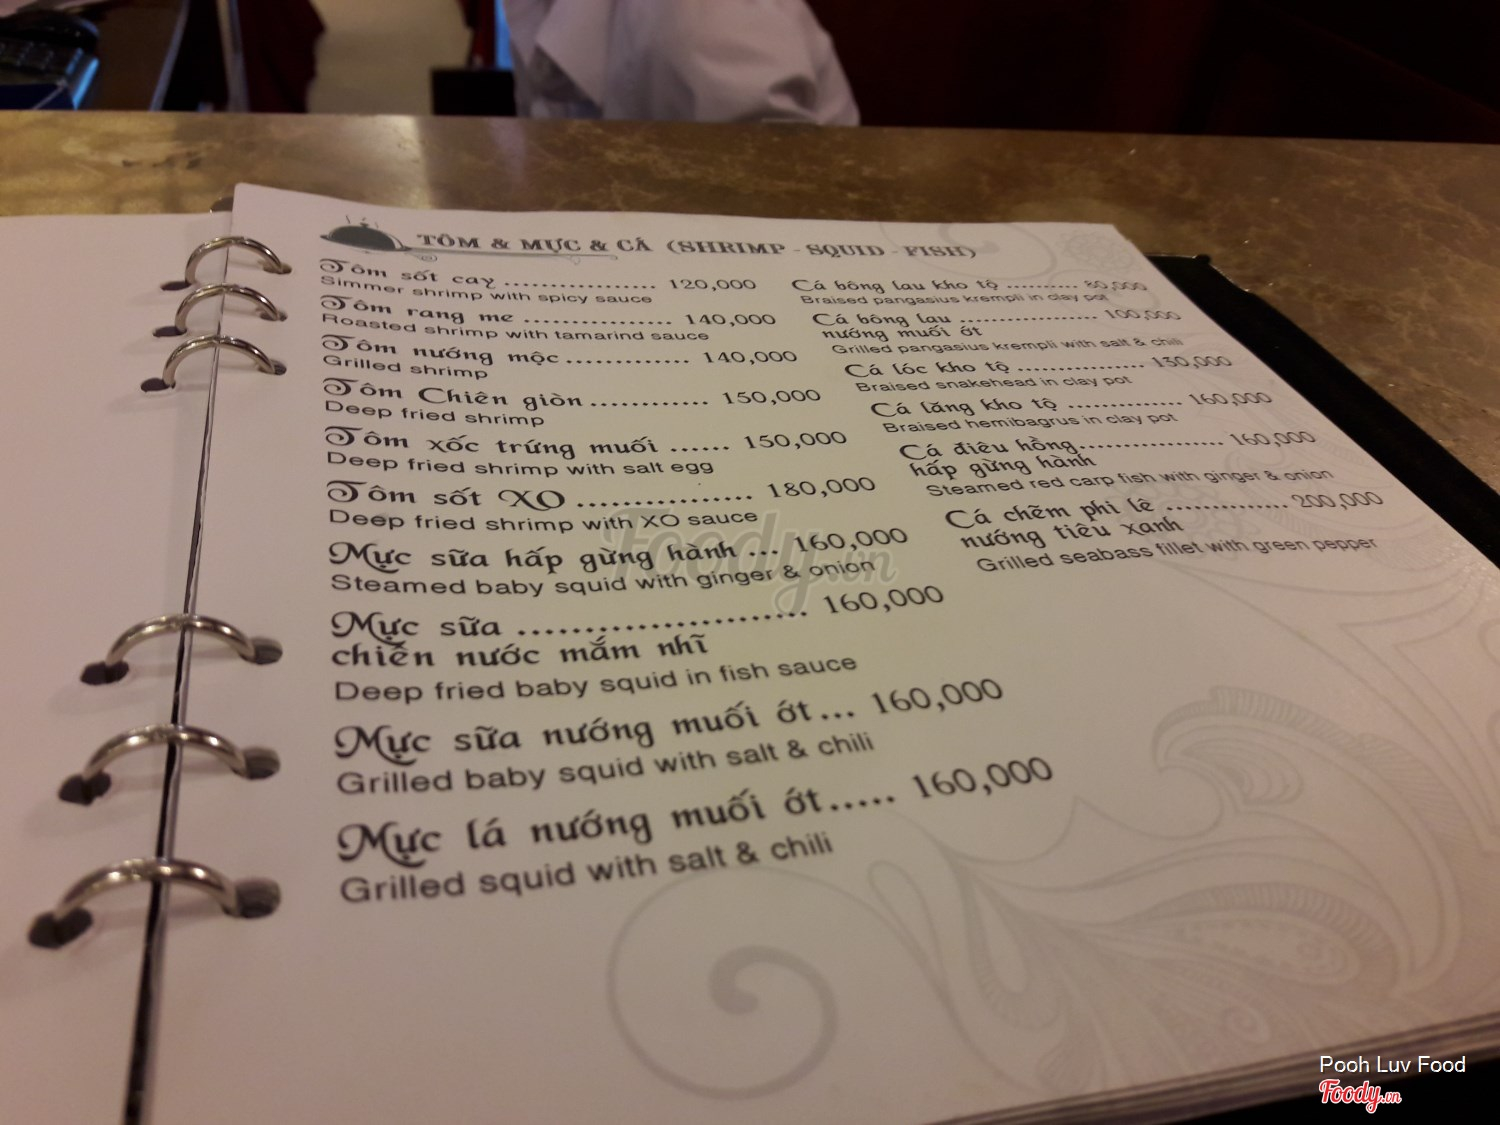 TÔM & MỰC & CÁ (SHRIMP - SQUID - FISH)
Tôm sốt cay ................. 120,000
Simmer shrimp with spicy sauce
Tôm rang me ................ 140,000
Roasted shrimp with tamarind sauce
Tôm nướng mộc ............. 140,000
Grilled shrimp
Tôm Chiên giòn ............ 150,000
Deep fried shrimp
Tôm xốc trứng muối ...... 150,000
Deep fried shrimp with salt egg
Tôm sốt XO ................. 180,000
Deep fried shrimp with XO sauce
Mực sữa hấp gừng hành ... 160,000
Steamed baby squid with ginger & onion
Mực sữa ...................... 160,000
chiên nước mắm nhĩ
Deep fried baby squid in fish sauce
Mực sữa nướng muối ớt ... 160,000
Grilled baby squid with salt & chili
Mực lá nướng muối ớt ..... 160,000
Grilled squid with salt & chili
Cá bông lau kho tộ .......... 80,000
Braised pangasius krempli in clay pot
Cá bông lau .................. 100,000
nướng muối ớt
Grilled pangasius krempli with salt & chili
Cá lóc kho tộ ................ 130,000
Braised snakehead in clay pot
Cá lăng kho tộ .............. 160,000
Braised hemibagrus in clay pot
Cá điêu hồng ................. 160,000
hấp gừng hành
Steamed red carp fish with ginger & onion
Cá chẽm phi lê .............. 200,000
nướng tiêu xanh
Grilled seabass fillet with green pepper
Foody.vn
Pooh Luv Food
Foody.vn